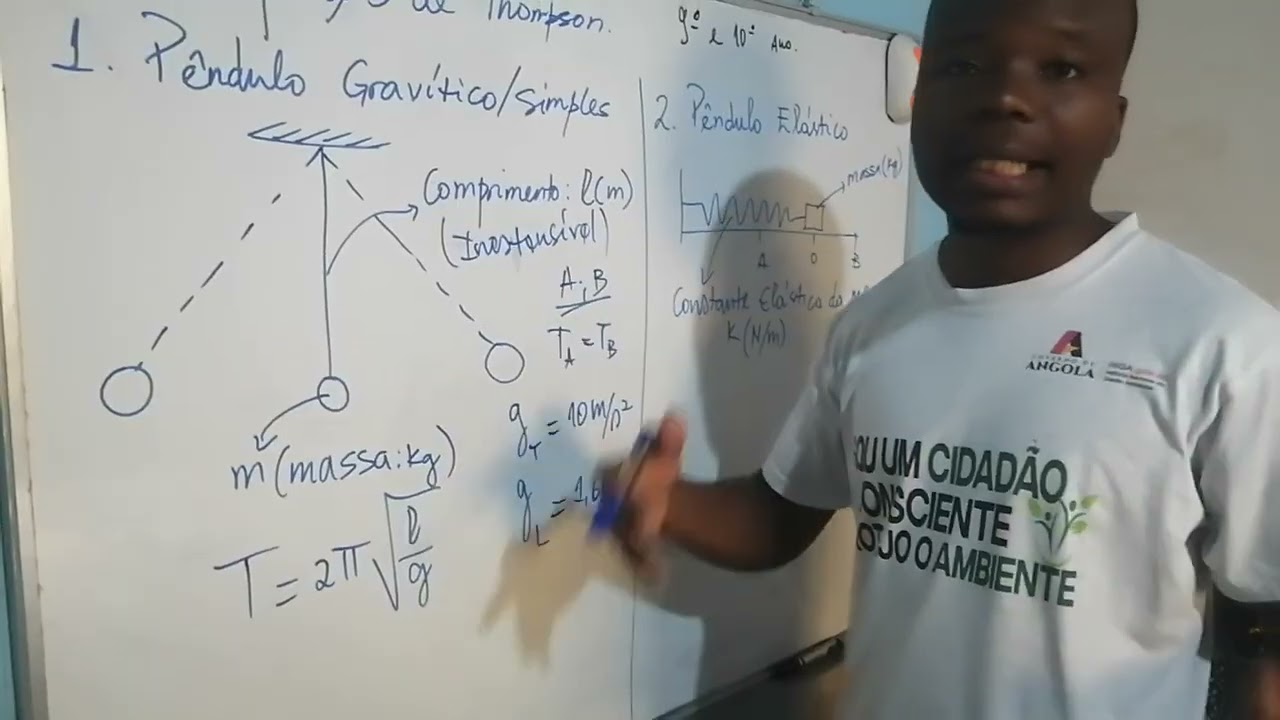 de Thompson.
9º e 10º Ano.
1. Pêndulo Gravítico/simples
Comprimento: l(m)
(Inextensível)
A; B
T_A = T_B
g_T = 10 m/s²
g_L = 1,6
m (massa: kg)
T = 2π√(l/g)
2. Pêndulo Elástico
massa(kg)
A O B
Constante Elástica da
K (N/m)
GOVERNO DE
ANGOLA
OU UM CIDADÃO
ONSCIENTE
O AMBIENTE